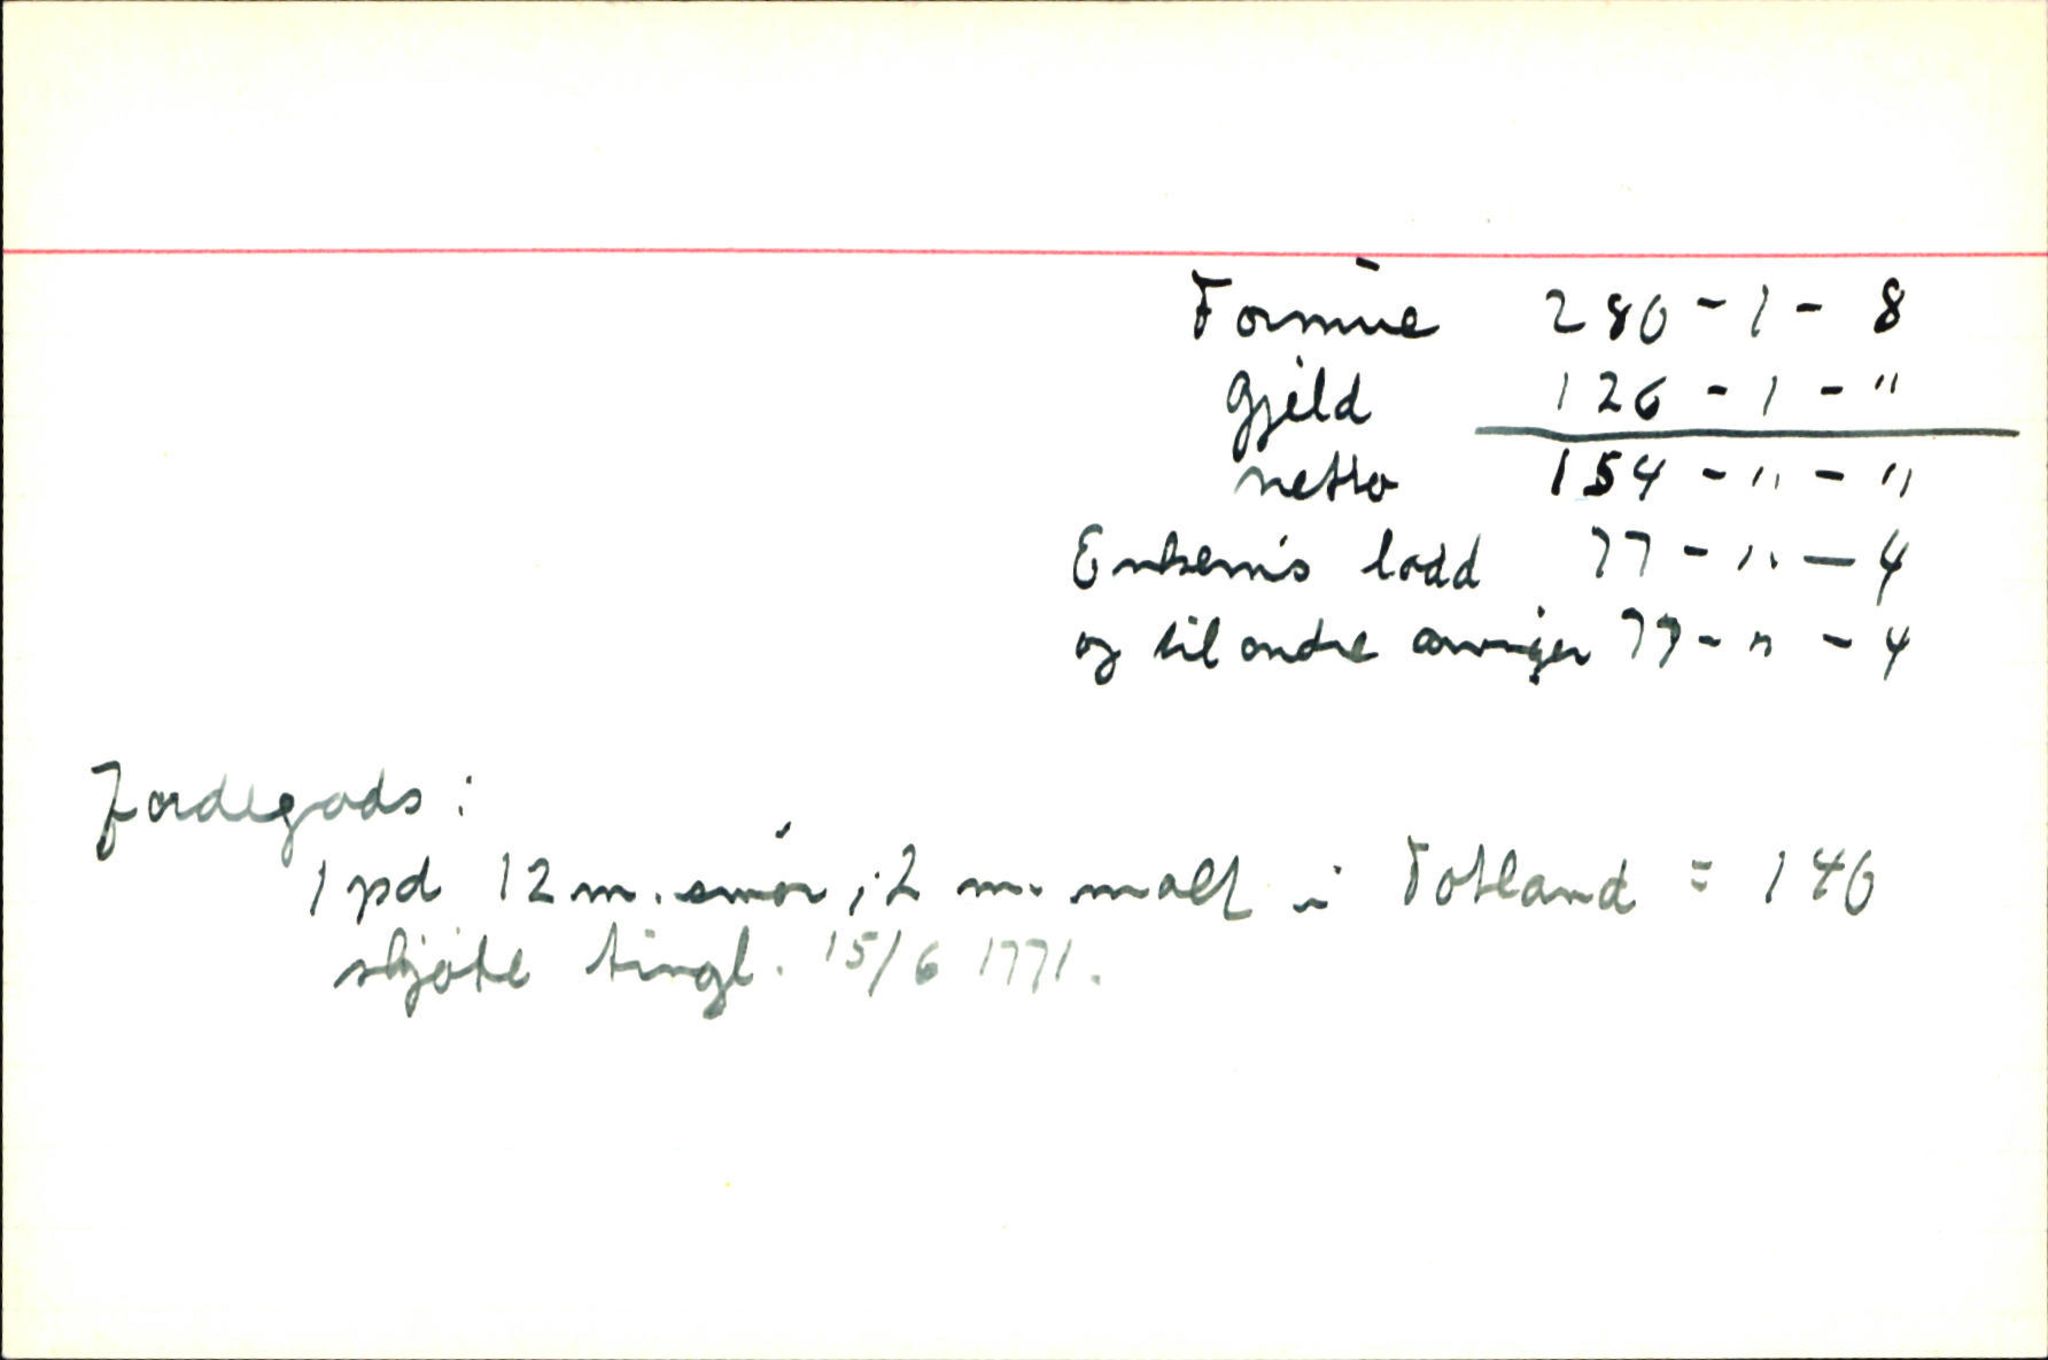 Formue 280 - 1 - 8
Gjeld 126 - 1 - "
netto 154 - " - "
Enkens lodd 77 - " - 4
og til andre arvinger 77 - " - 4
Jordegods:
1 pd 12 m. smör, 2 m. malt i Totland = 140
skjöte tingl. 15/6 1771.